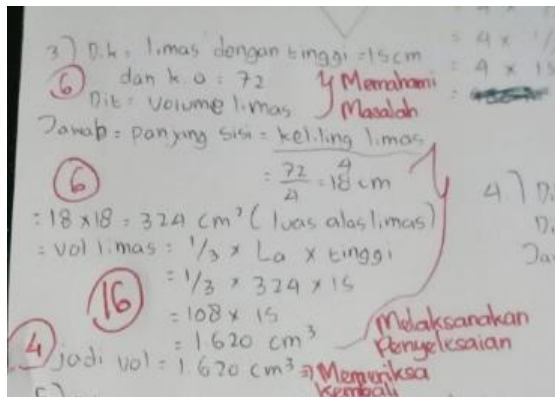 3) D.k = limas dengan tinggi = 15 cm
6 dan k. a = 72
Dit = Volume limas
} Memahami Masalah
Jawab = panjang sisi = keliling limas
4
= 72/4 = 18 cm
6
= 18 x 18 = 324 cm² ( luas alas limas )
= vol limas = 1/3 x La x tinggi
= 1/3 x 324 x 15
16
= 108 x 15
= 1.620 cm³
Melaksanakan Penyelesaian
4 jadi vol = 1.620 cm³ => Memeriksa Kembali
= 4 x
= 4 x 15
=
4.) D.
D.
Ja
5)